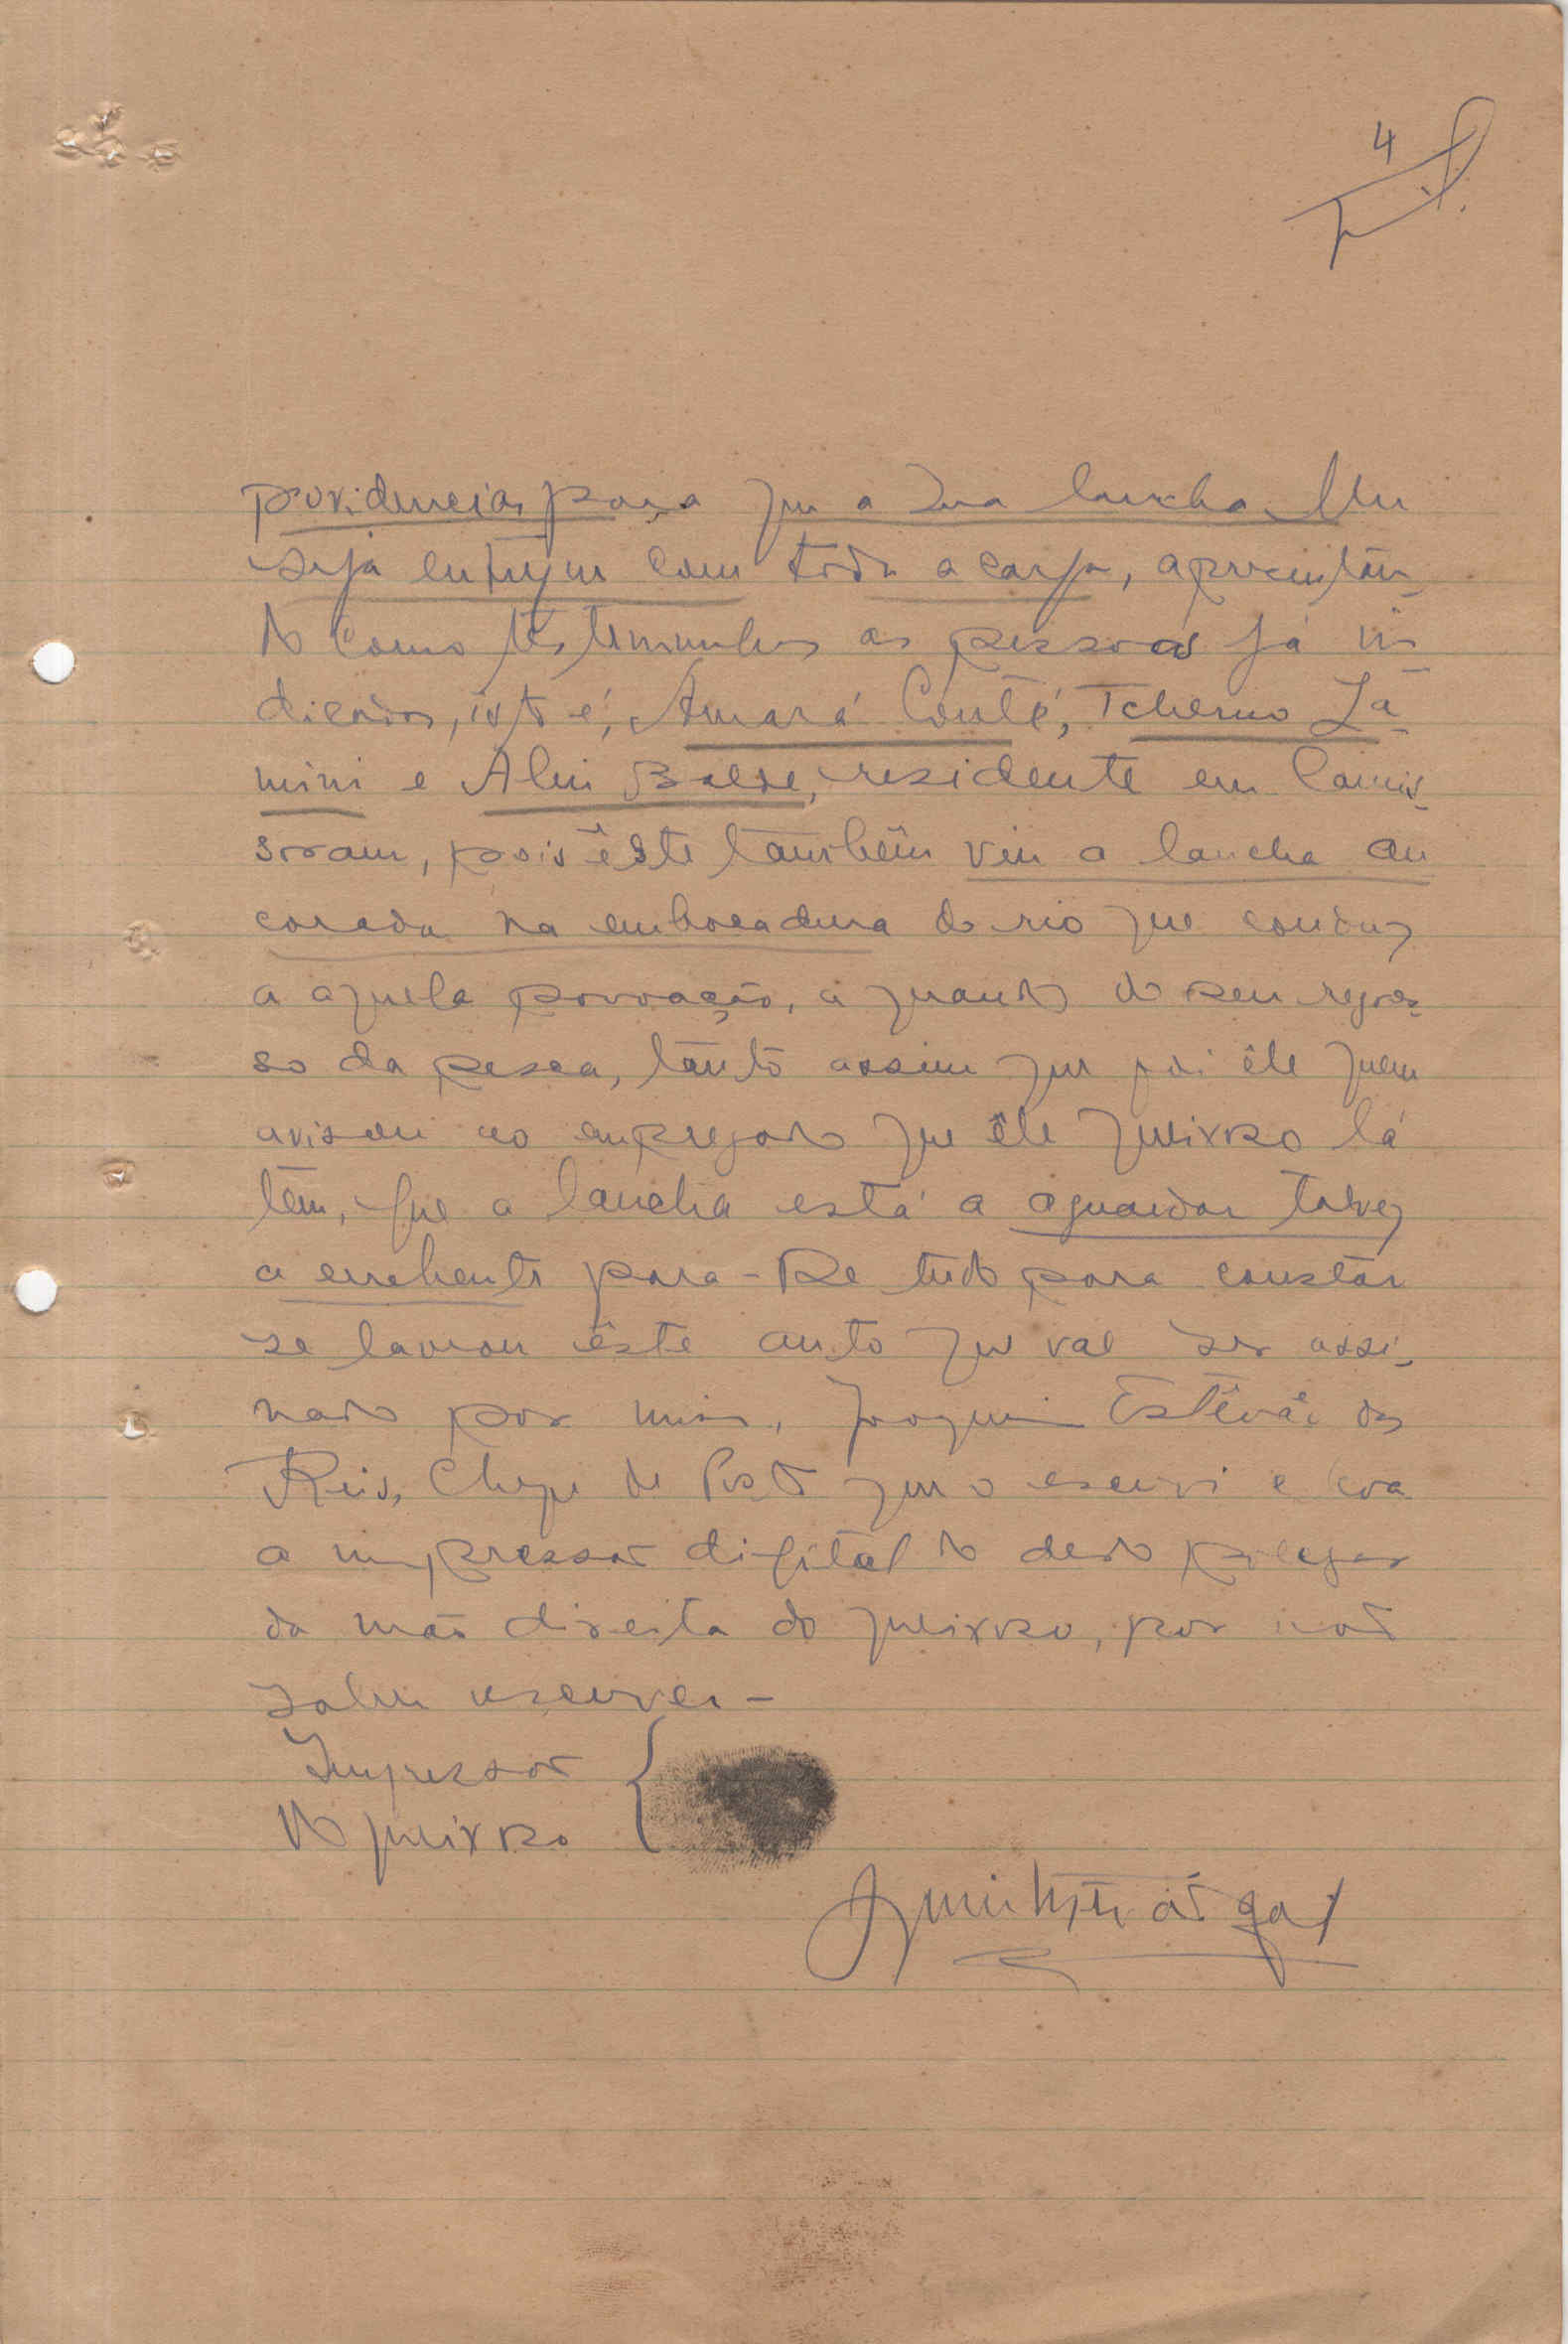 4
providencias para que a sua lancha lhe
seja entregue com toda a carga, apresentan-
do como testemunhas as pessoas já in-
dicadas, isto é, Amará Conté, Tcherno La-
mini e Aliu Balde, residente em Camis-
soram, pois êste tambêm viu a lancha an
corada na embocadura do rio que conduz
a aquela povoação, a quando do seu regres-
so da pesca, tanto assim que foi êle quem
avisou ao empregado que êle queixoso lá
tem, que a lancha está a aguardar talvez
a enchente para - De tudo para constar
se lavrou êste auto que vai ser assi-
nado por mim, Joaquim Estêvão dos
Reis, Chefe de Posto que o escrevi e com
a impressão digital do dedo polegar
da mão direita do queixoso, por não
saber escrever -
Impressão
do queixoso